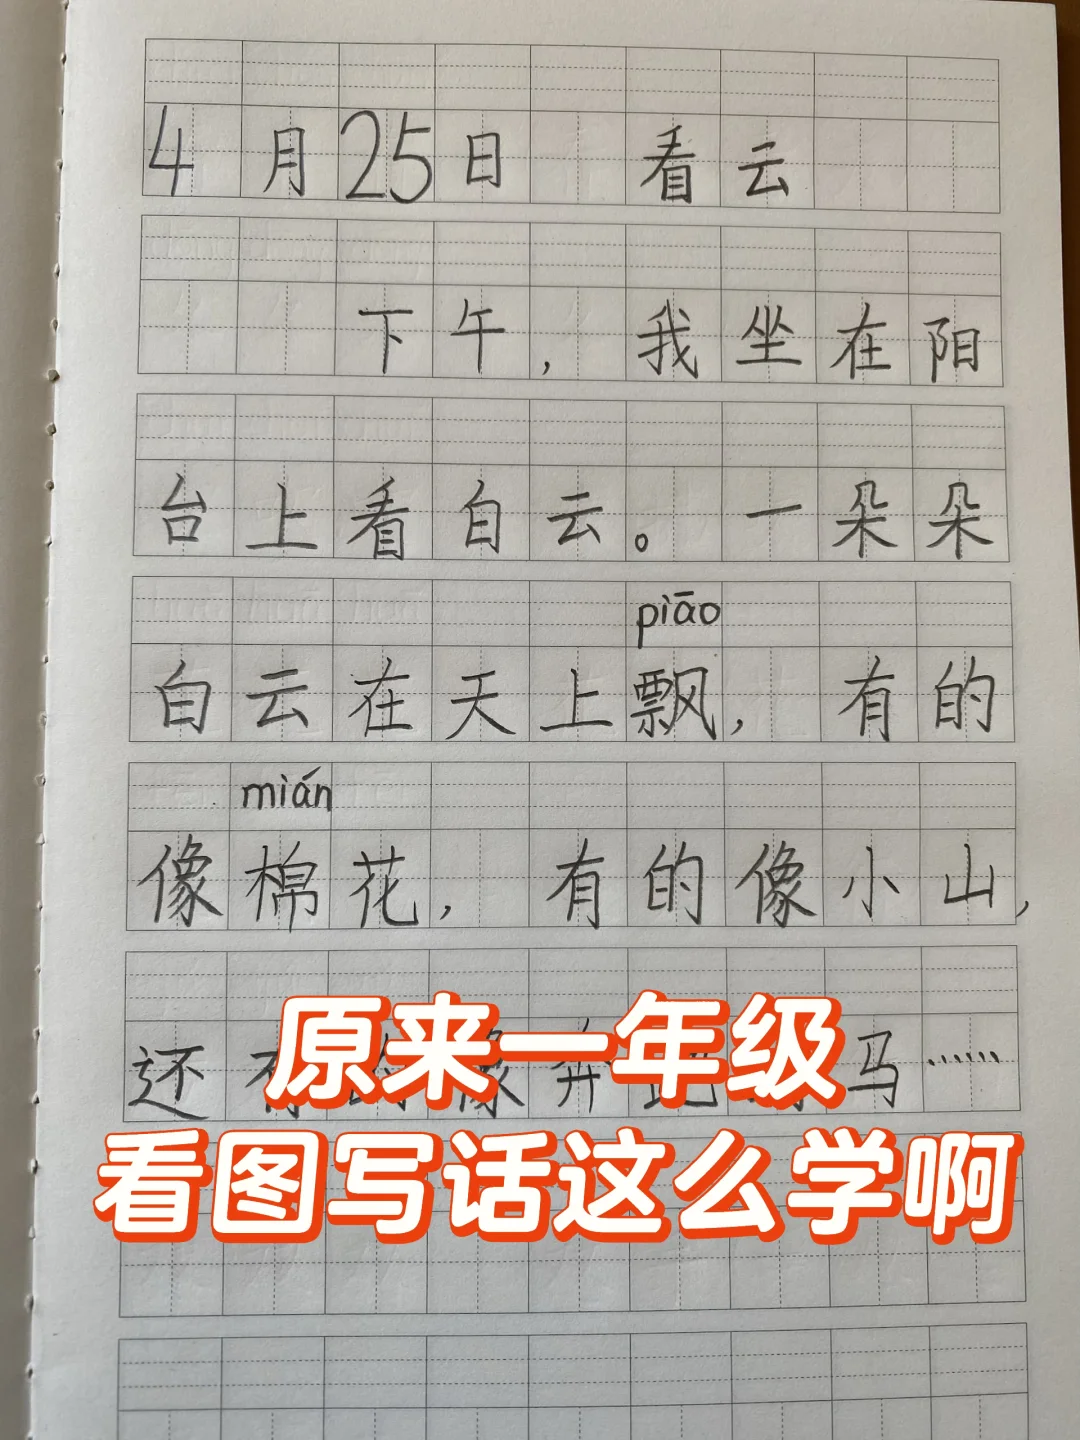 4月25日 看云
下午，我坐在阳
台上看白云。一朵朵
piāo
白云在天上飘，有的
mián
像棉花，有的像小山，
还有的像奔跑的马……
原来一年级
看图写话这么学啊